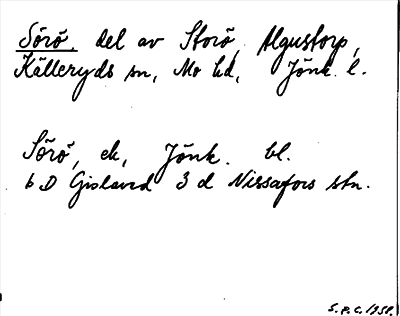 Sörö, del av Storö, Algustorp,
Källeryds sn, Mo hd, Jönk. l.
Sörö, ek, Jönk. bl.
6 D Gislaved 3 d Nissafors stn.
S.P.C. 1951.